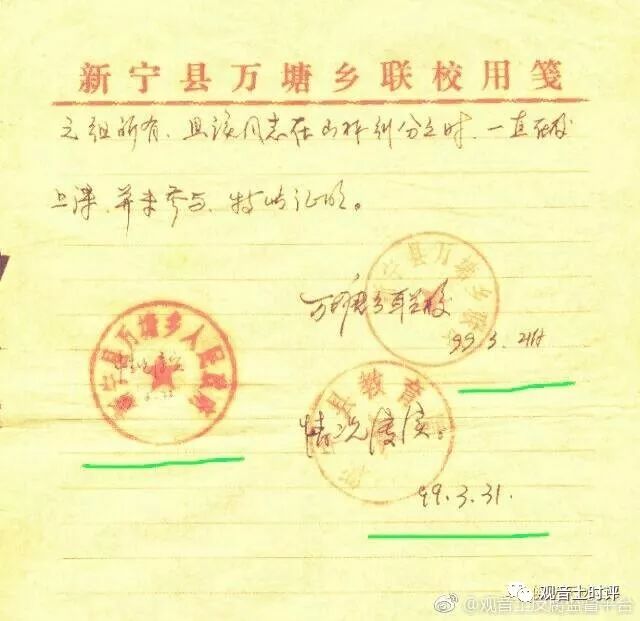 新宁县万塘乡联校用笺
之组所有、且该同志在山林纠纷之时、一直在校
上课、并未参与、特此证明。
新宁县万塘乡联
万塘乡联校
99.3.
新宁县万塘乡人民政府
县教育
情况属实。
99.3.31.
观音土时评